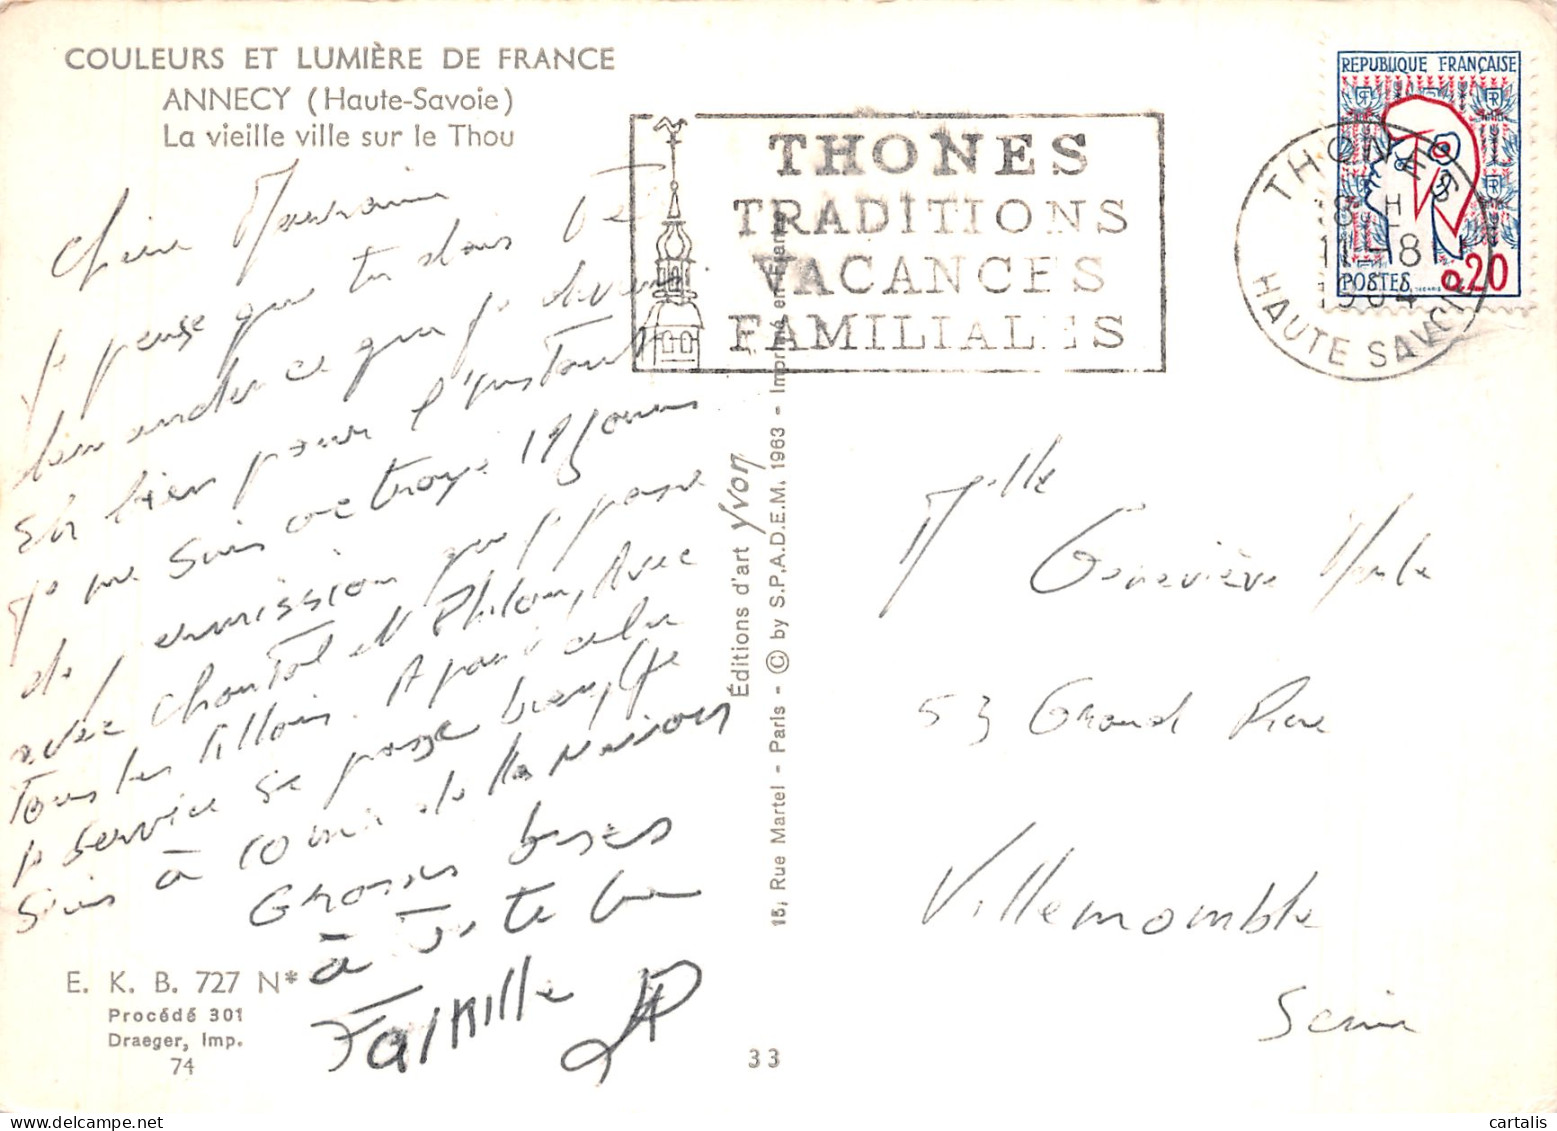 COULEURS ET LUMIÈRE DE FRANCE
ANNECY (Haute-Savoie)
La vieille ville sur le Thou
je pense que tu dois
demander ce que je deviens
Eh bien pour l'instant
je me suis octroyé 19 jours
de permission que je passe
avec Chantal et Avec
Tous les A part cela
le service se passe bien, je
suis à 10 de la maison
Grosses bises
à toute la
Famille
E. K. B. 727 N*
Procédé 301
Draeger, Imp.
74
33
Éditions d'art Yvon
15, Rue Martel - Paris - © by S.P.A.D.E.M. 1963 - Imprimé en France
THONES
TRADITIONS
VACANCES
FAMILIALES
REPUBLIQUE FRANÇAISE
POSTES
0,20
THONES
18 H
11-8
1964
HAUTE SAVOIE
Mlle
Geneviève
53 Grand Rue
Villemomble
Seine
cartalis